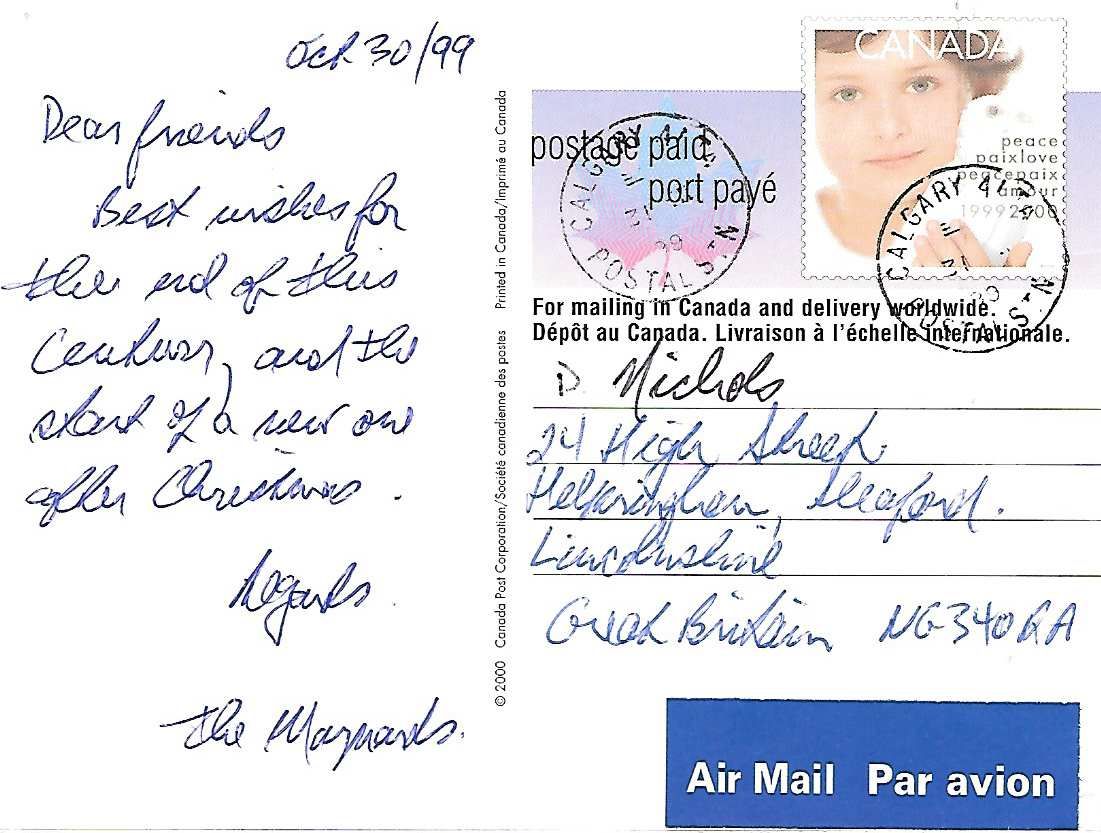 Oct 30/99
Dear friends
Best wishes for
the end of this
Century, and the
start of a new one
after Christmas.
Regards.
The Maynards.
© 2000 Canada Post Corporation/Société canadienne des postes Printed in Canada/Imprimé au Canada
CANADA
peace
paixlove
peacepaix
amour
19992000
postage paid
port payé
CALGARY
POSTAL STN
99
CALGARY
POSTAL STN
99
For mailing in Canada and delivery worldwide.
Dépôt au Canada. Livraison à l'échelle internationale.
D Nichols
24 High Street
Helpringham, Sleaford.
Lincolnshire
Great Britain NG34 0RA
Air Mail Par avion